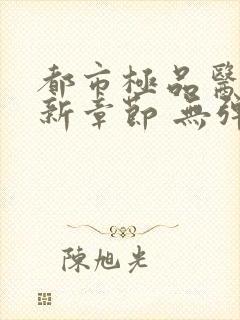 都市極品醫
新章節 無彈
陳旭光